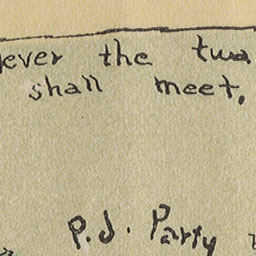 never the twa
shall meet.
P.J. Party